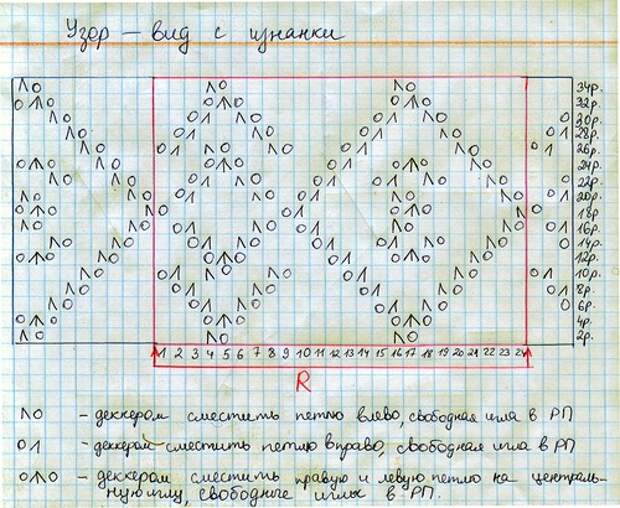 Узор – вид с изнанки
34р.
32р.
30р.
28р.
26р.
24р.
22р.
20р.
18р.
16р.
14р.
12р.
10р.
8р.
6р.
4р.
2р.
1 2 3 4 5 6 7 8 9 10 11 12 13 14 15 16 17 18 19 20 21 22 23 24
R
ΛО – деккером сместить петлю влево, свободная игла в РП
О1 – деккером сместить петлю вправо, свободная игла в РП
О⋔О – деккером сместить правую и левую петлю на централь-
ную иглу, свободные иглы в РП.